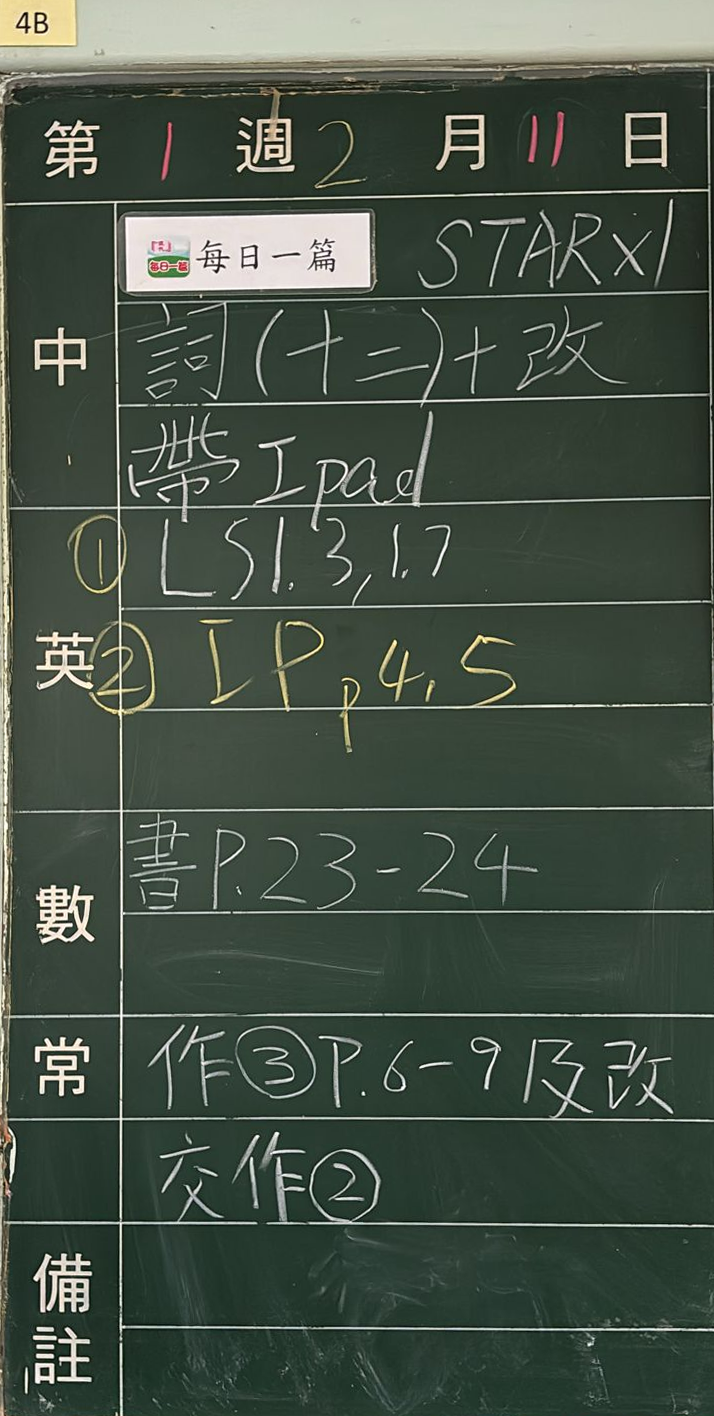 4B
第 1 週 2 月 11 日
中
每日一篇 每日一篇 STAR×1
詞(十二)+改
帶Ipad
英
① LS1.3,1.7
② IP p4,5
數
書P.23-24
常
作③P.6-9及改
交作②
備註